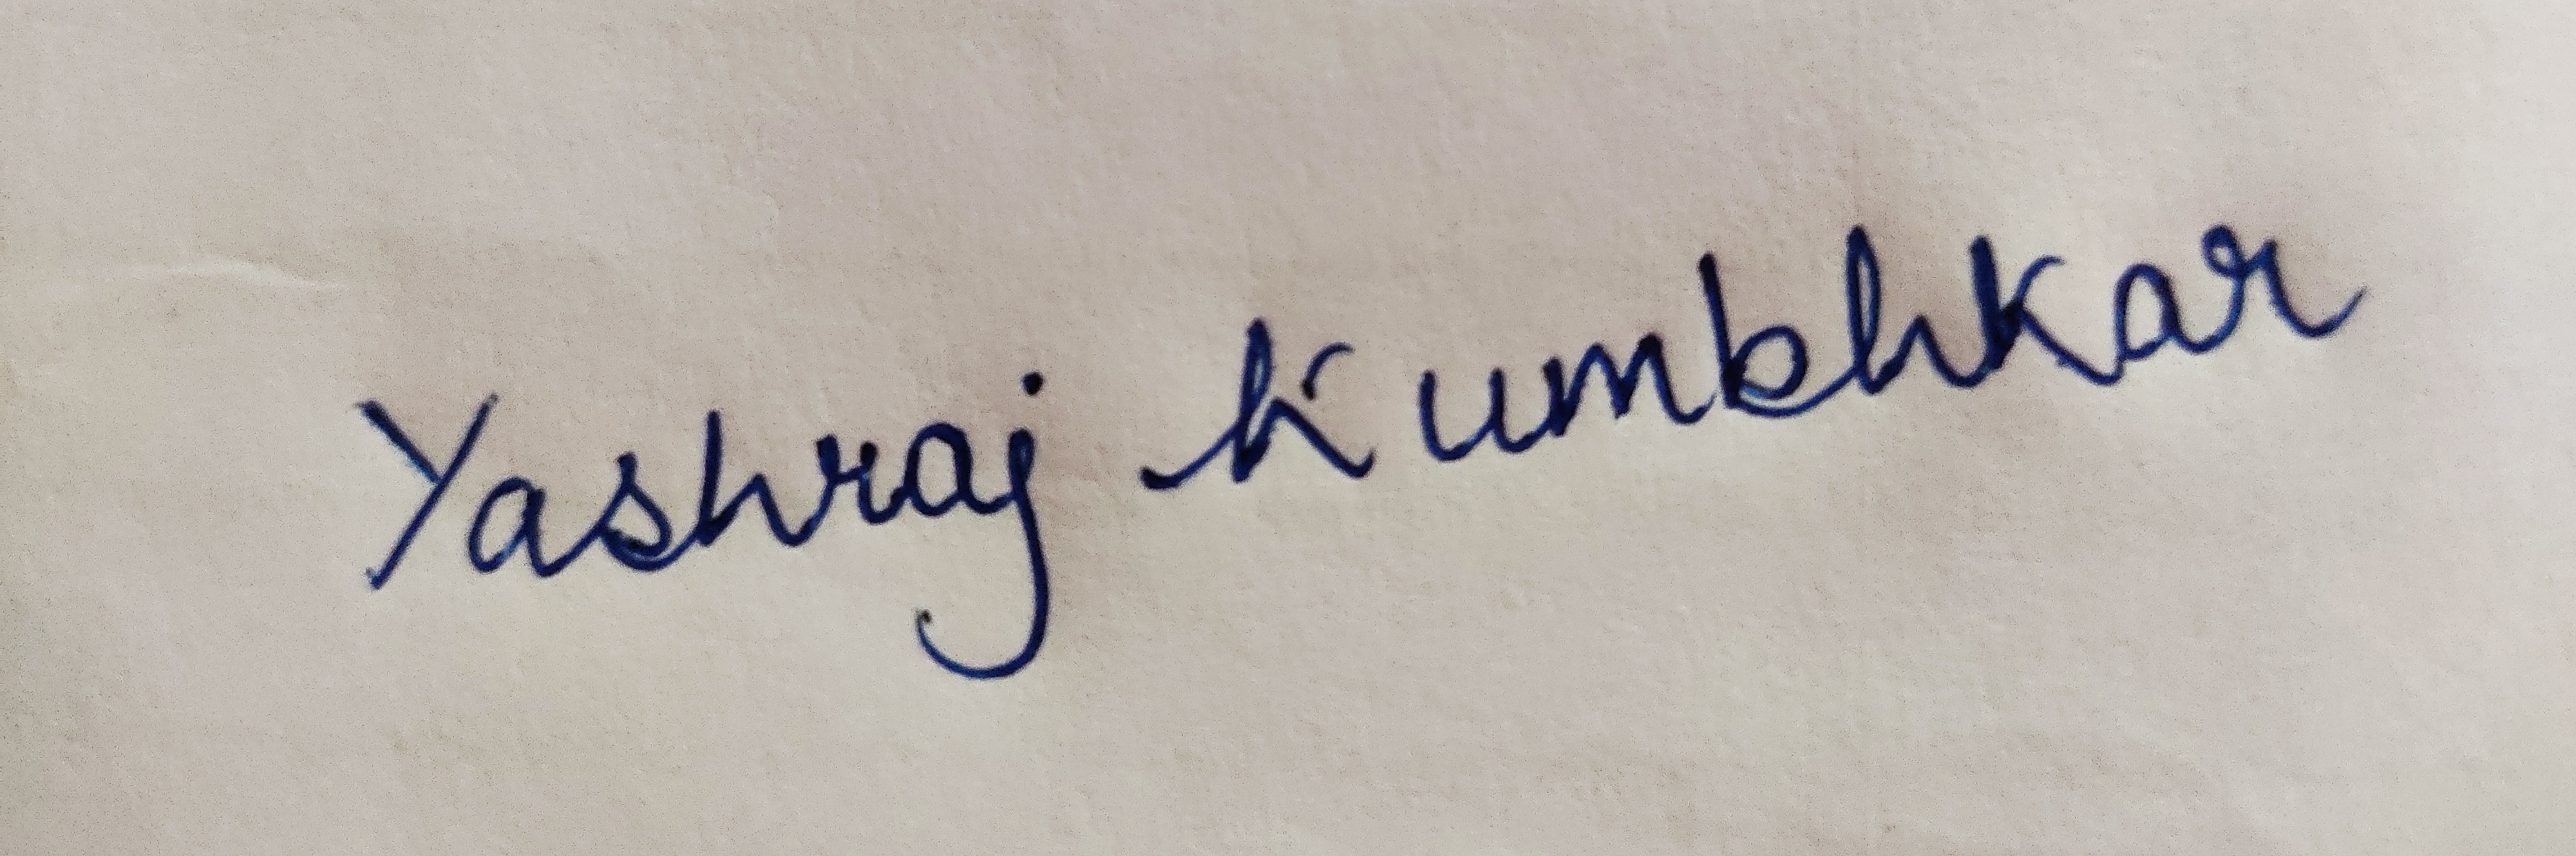 Yashraj Kumbhkar